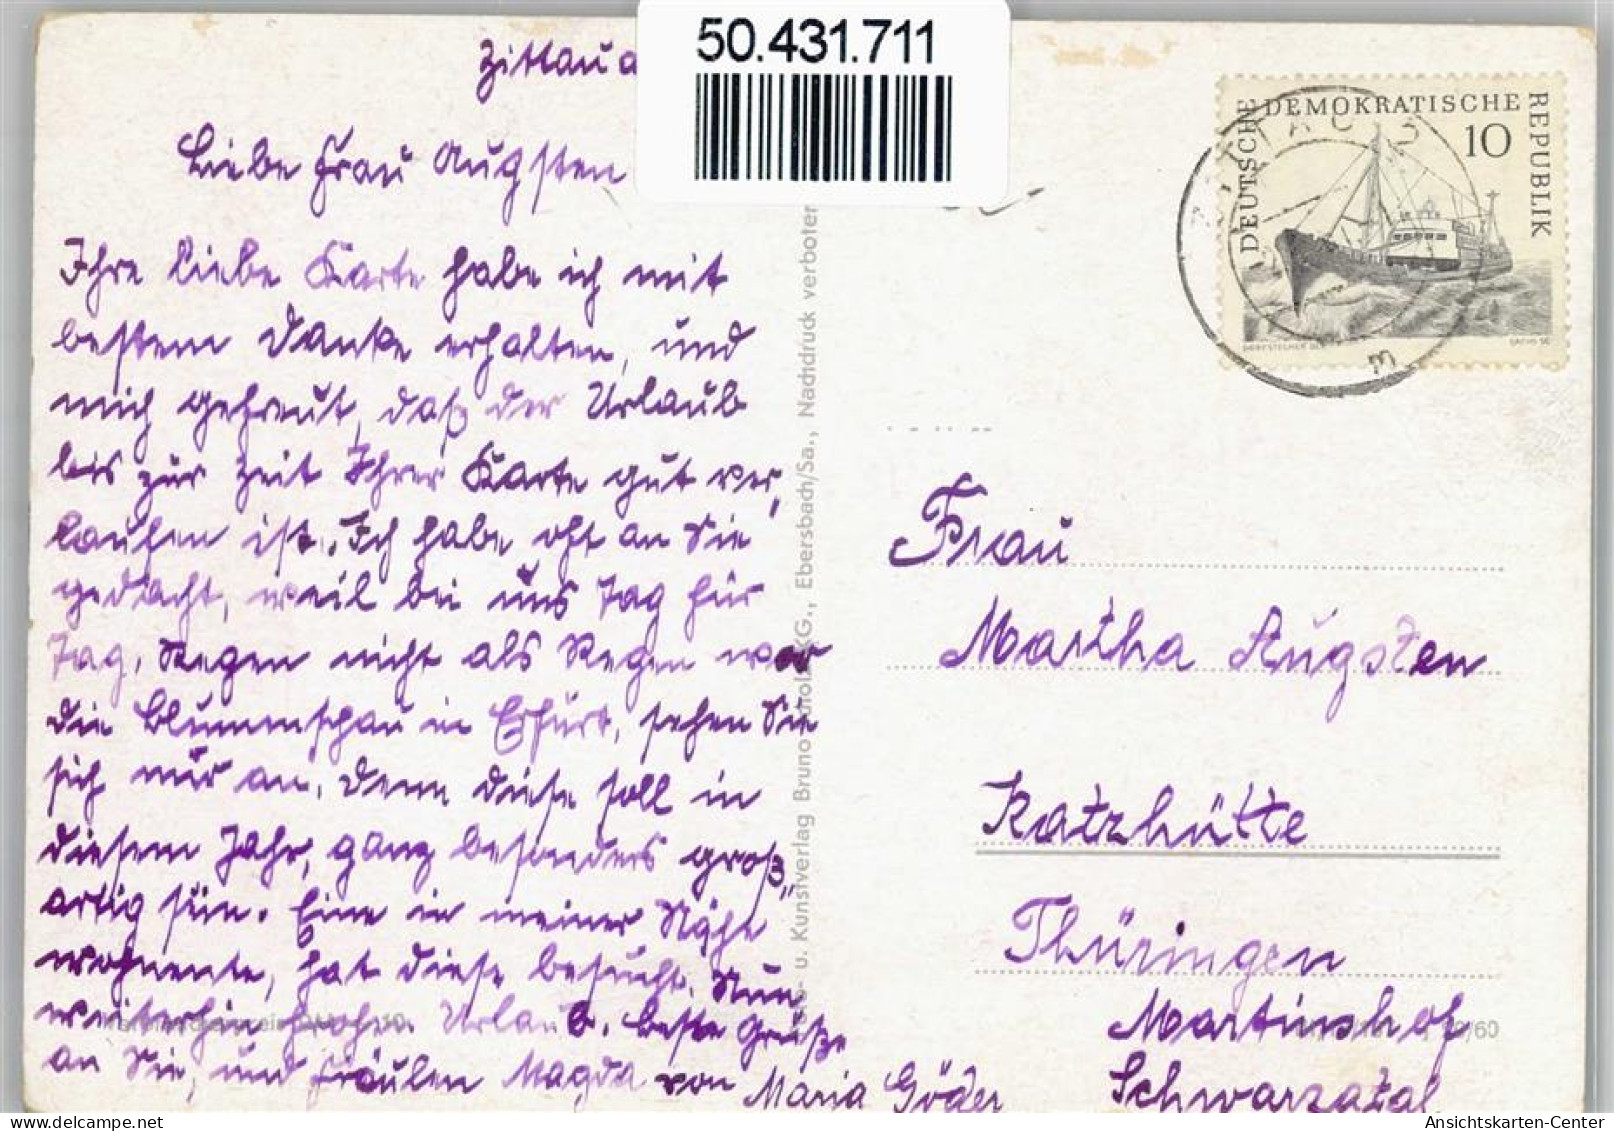 50.431.711
Zittau a
Liebe Frau Augsten
Ihre liebe Karte habe ich mit
bestem Danke erhalten, und
mich gefreut, daß der Urlaub
bis zur Zeit Ihrer Karte gut ver,
laufen ist. Ich habe oft an Sie
gedacht, weil bei uns Tag für
Tag, Regen nicht als Regen war
die Blumenschau in Erfurt, sehen Sie
sich nur an. Denn diese soll in
diesem Jahr, ganz besonders groß,,
artig sein. Eine in meiner Nähe
wohnente, hat diese besucht. Nun
weiterhin frohen Urlaub. Beste Grüße
an Sie, und Fräulen Magda von Maria Göder
u. Kunstverlag Bruno Scholz KG., Ebersbach/Sa., Nachdruck verboten
DEUTSCHE DEMOKRATISCHE REPUBLIK
10
Frau
Martha Augsten
Katzhütte
Thüringen
Martinshof
Schwarzatal
/60
Ansichtskarten-Center